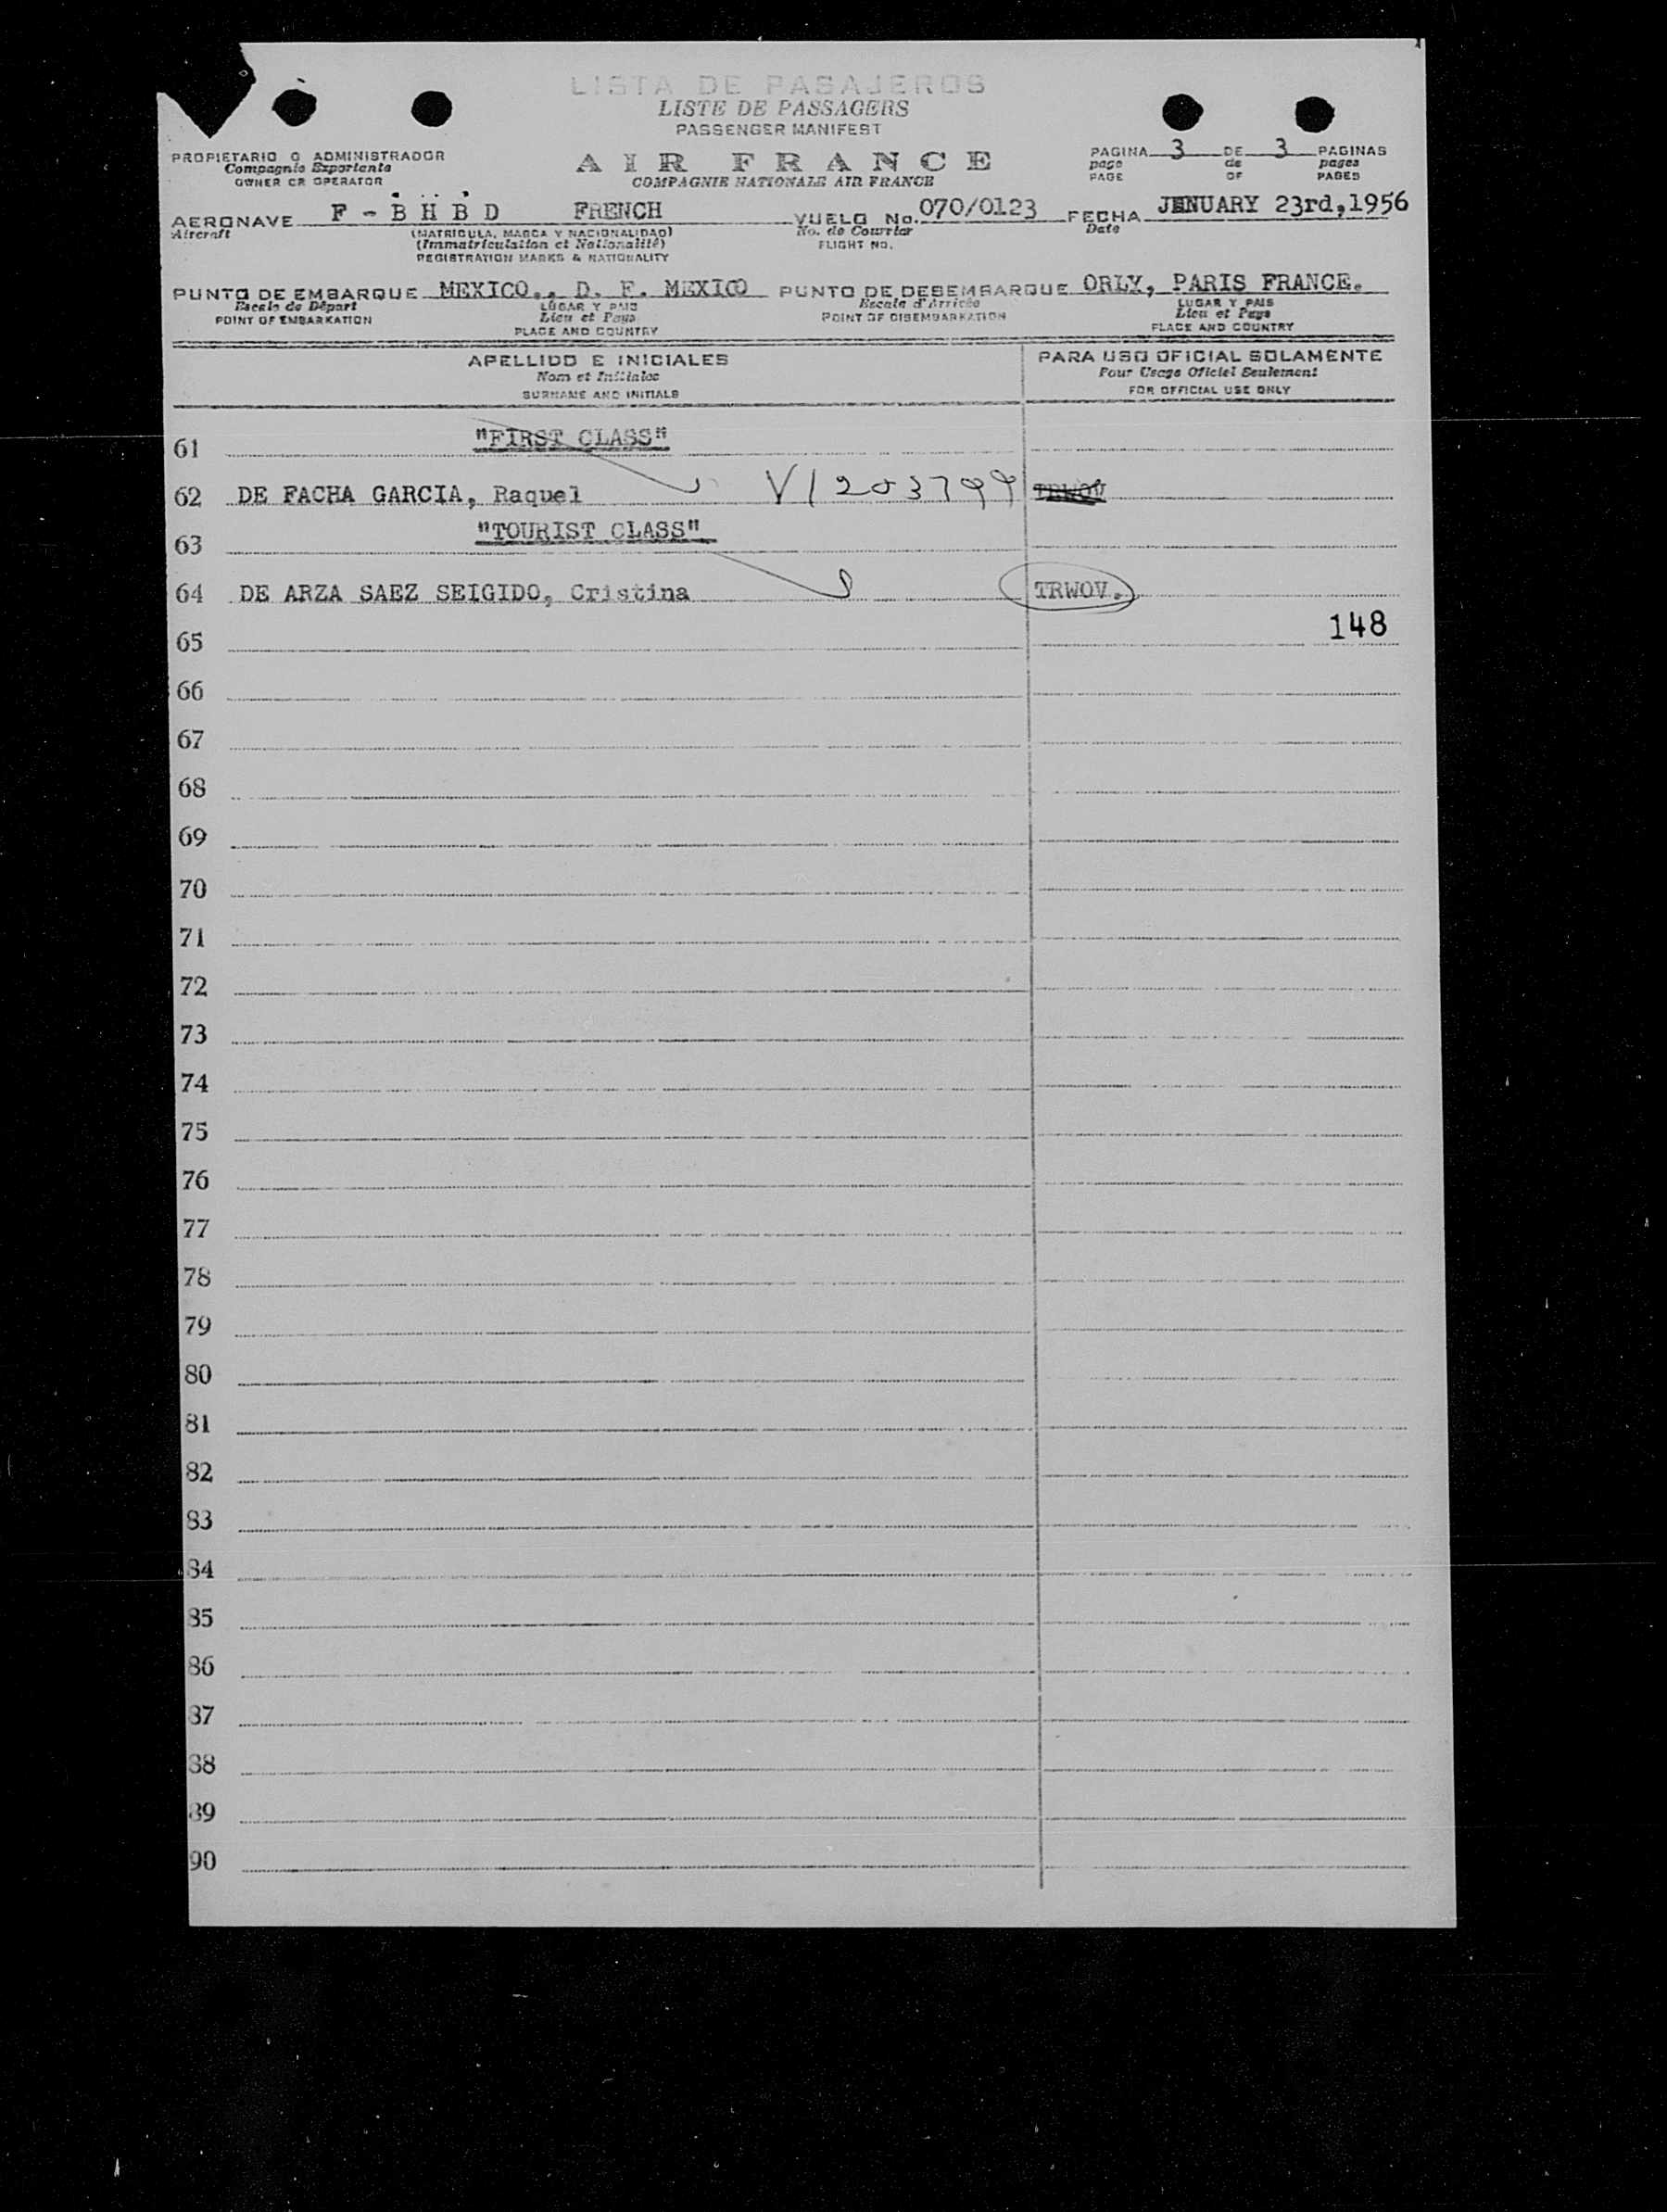 LISTA DE PASAJEROS
LISTE DE PASSAGERS
PASSENGER MANIFEST
AIR FRANCE
COMPAGNIE NATIONALE AIR FRANCE
PROPIETARIO O ADMINISTRADOR
Compagnie Exportante
OWNER OR OPERATOR
PAGINA 3 DE 3 PAGINAS
page de pages
PAGE OF PAGES
AERONAVE F - B H B D FRENCH VUELO No. 070/0123 FECHA JENUARY 23rd,1956
Aircraft (MATRICULA, MARCA Y NACIONALIDAD) No. de Courrier Date
(Immatriculation et Nationalité) FLIGHT NO.
REGISTRATION MARKS & NATIONALITY
PUNTO DE EMBARQUE MEXICO., D. F. MEXICO PUNTO DE DESEMBARQUE ORLY, PARIS FRANCE.
Escale de Départ LUGAR Y PAIS Escale d'Arrivée LUGAR Y PAIS
POINT OF EMBARKATION Lieu et Pays POINT OF DISEMBARKATION Lieu et Pays
PLACE AND COUNTRY PLACE AND COUNTRY
APELLIDO E INICIALES PARA USO OFICIAL SOLAMENTE
Nom et Initiales Pour Usage Oficiel Seulement
SURNAME AND INITIALS FOR OFFICIAL USE ONLY
61 "FIRST CLASS"
62 DE FACHA GARCIA, Raquel V1203799 TRWOV
63 "TOURIST CLASS"
64 DE ARZA SAEZ SEIGIDO, Cristina TRWOV.
148
65
66
67
68
69
70
71
72
73
74
75
76
77
78
79
80
81
82
83
84
85
86
87
88
89
90